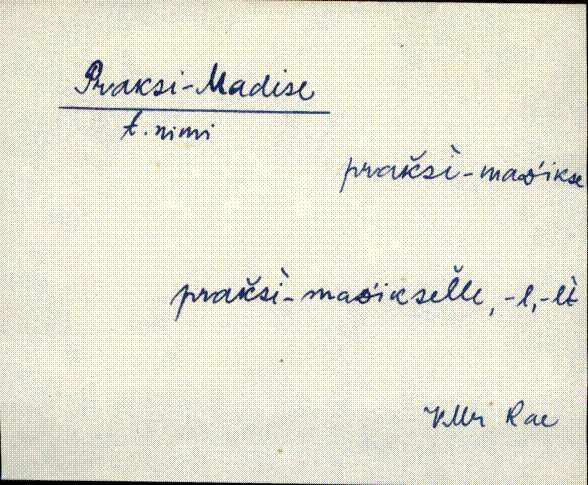 Praksi-Madise
t. nimi
prak̆sì-mas'ikse
prak̆sì-mas'iksel̆le, -l, -lt̀
VMr Rae